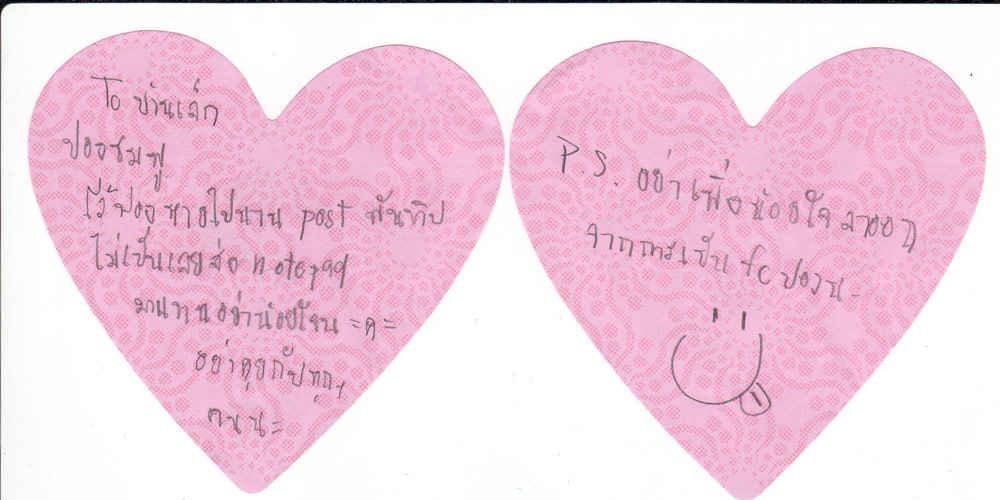 To บ้านเล็ก
ปองชมพู
ไว้ป๋องหายไปนาน post พันทิป
ไม่เป็นเลยส่ง
มาแทนอย่าน้อยใจน =ค=
อยากคุยกับทุกๆ
คนน=
P.S. อย่าเพิ่งน้อยใจลาออก
จากการเป็น fc ป๋องน-